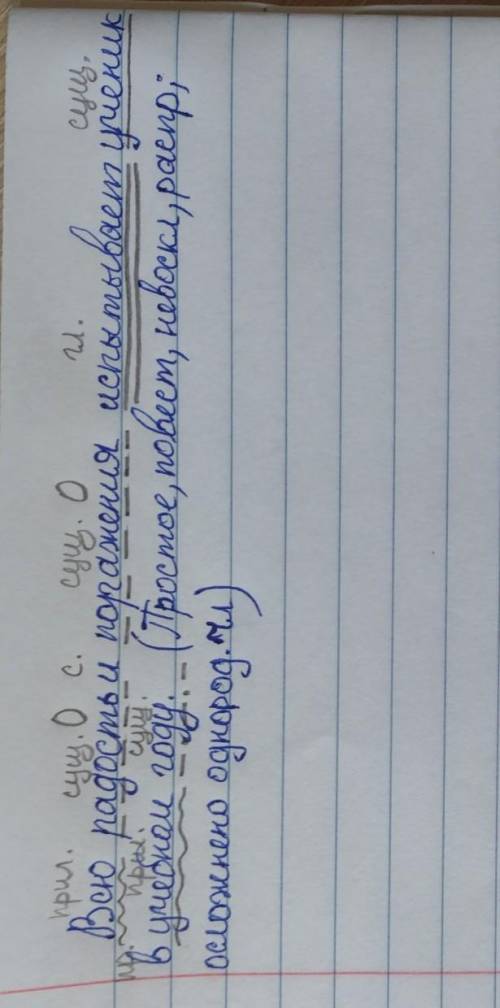 прил. сущ. О с. сущ. О гл. сущ.
Всю радость и поражения испытывает ученик
пр. прил. сущ.
в учебном году. (Простое, повест, невоскл, распр,
осложнено однород. чл)